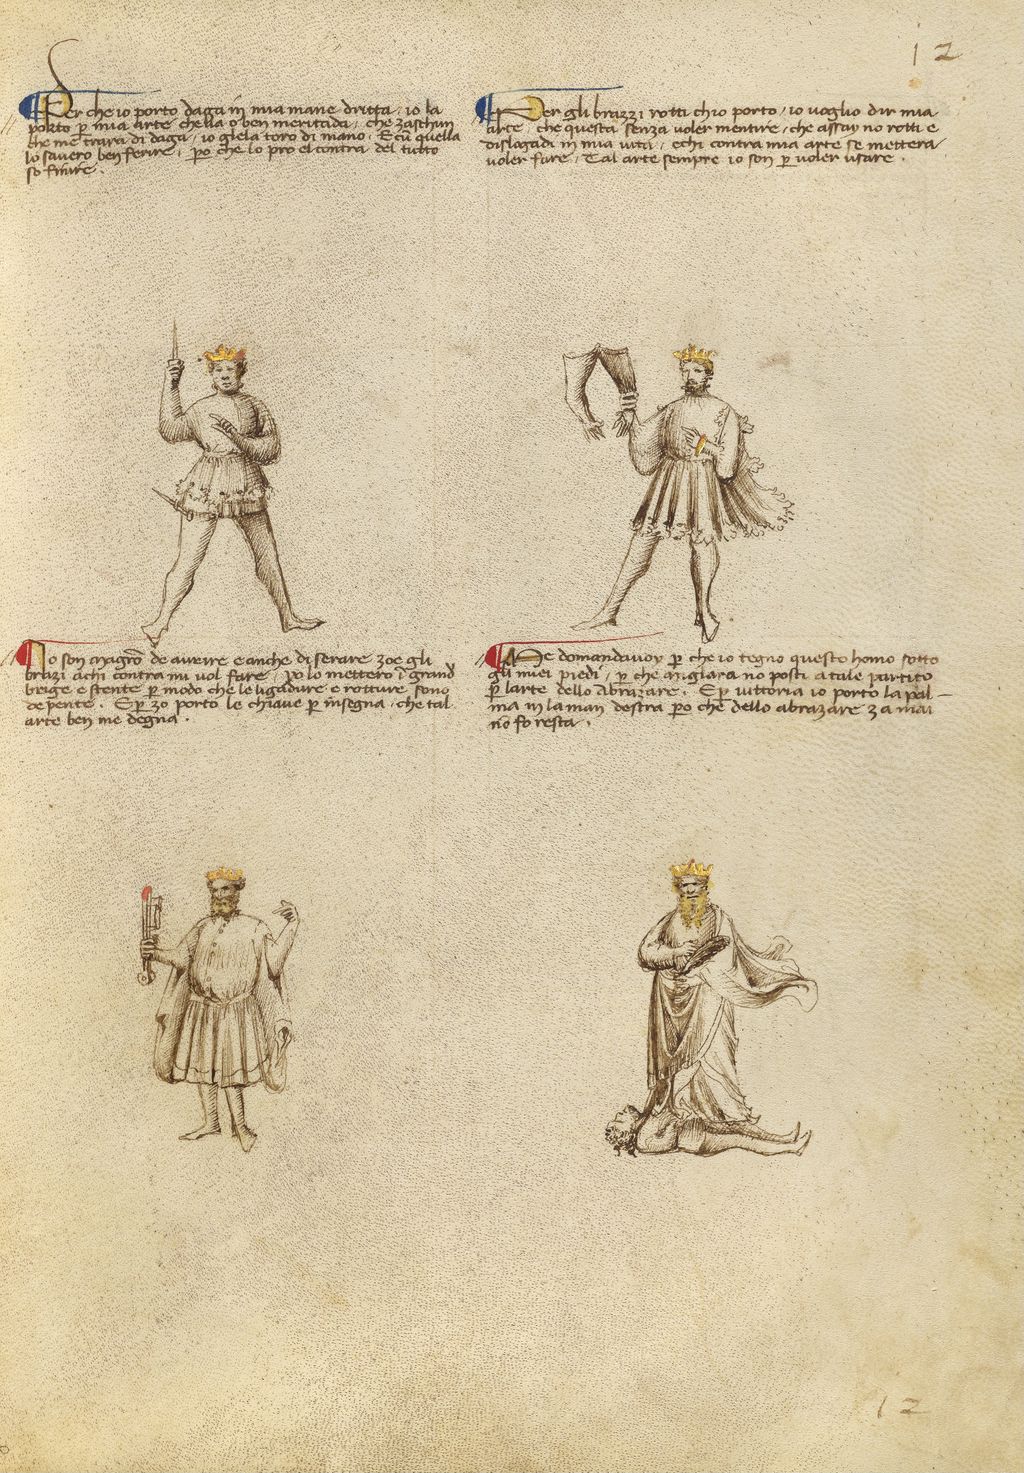 12
Per che io porto daga in mia mane dritta, io la
porto p mia arte chella o ben meritada, che zaschun
che me trara di daga, io glela toro di mano. E cū quella
lo savero ben ferire, po che lo pro el contra del tutto
so finire.
Per gli brazzi rotti ch'io porto, io voglio dir mia
arte, che questa senza voler mentire, che assay no rotti e
dislogadi in mia vita, e chi contra mia arte se mettera
voler fare, Tal arte sempre io son p voler usare.
Io son magrō de avrire e anche di serare zoe gli
brazi achi contra mi vol fare, po lo mettero ī grand
breige e stente p modo che le ligadure e rotture sono
depente. E p zo porto le chiave p insegna, che tal
arte ben me degna.
Me domandavoy p che io tegno questo homo sotto
gli miei piedi, p che miglara no posti a tale partito
p larte dello Abrazare. E p vittoria io porto la pal-
ma in la man destra po che dello abrazare za mai
nō fo resta.
12